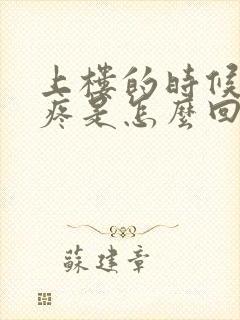 上樓的時候
疼是怎麼回
蘇建章